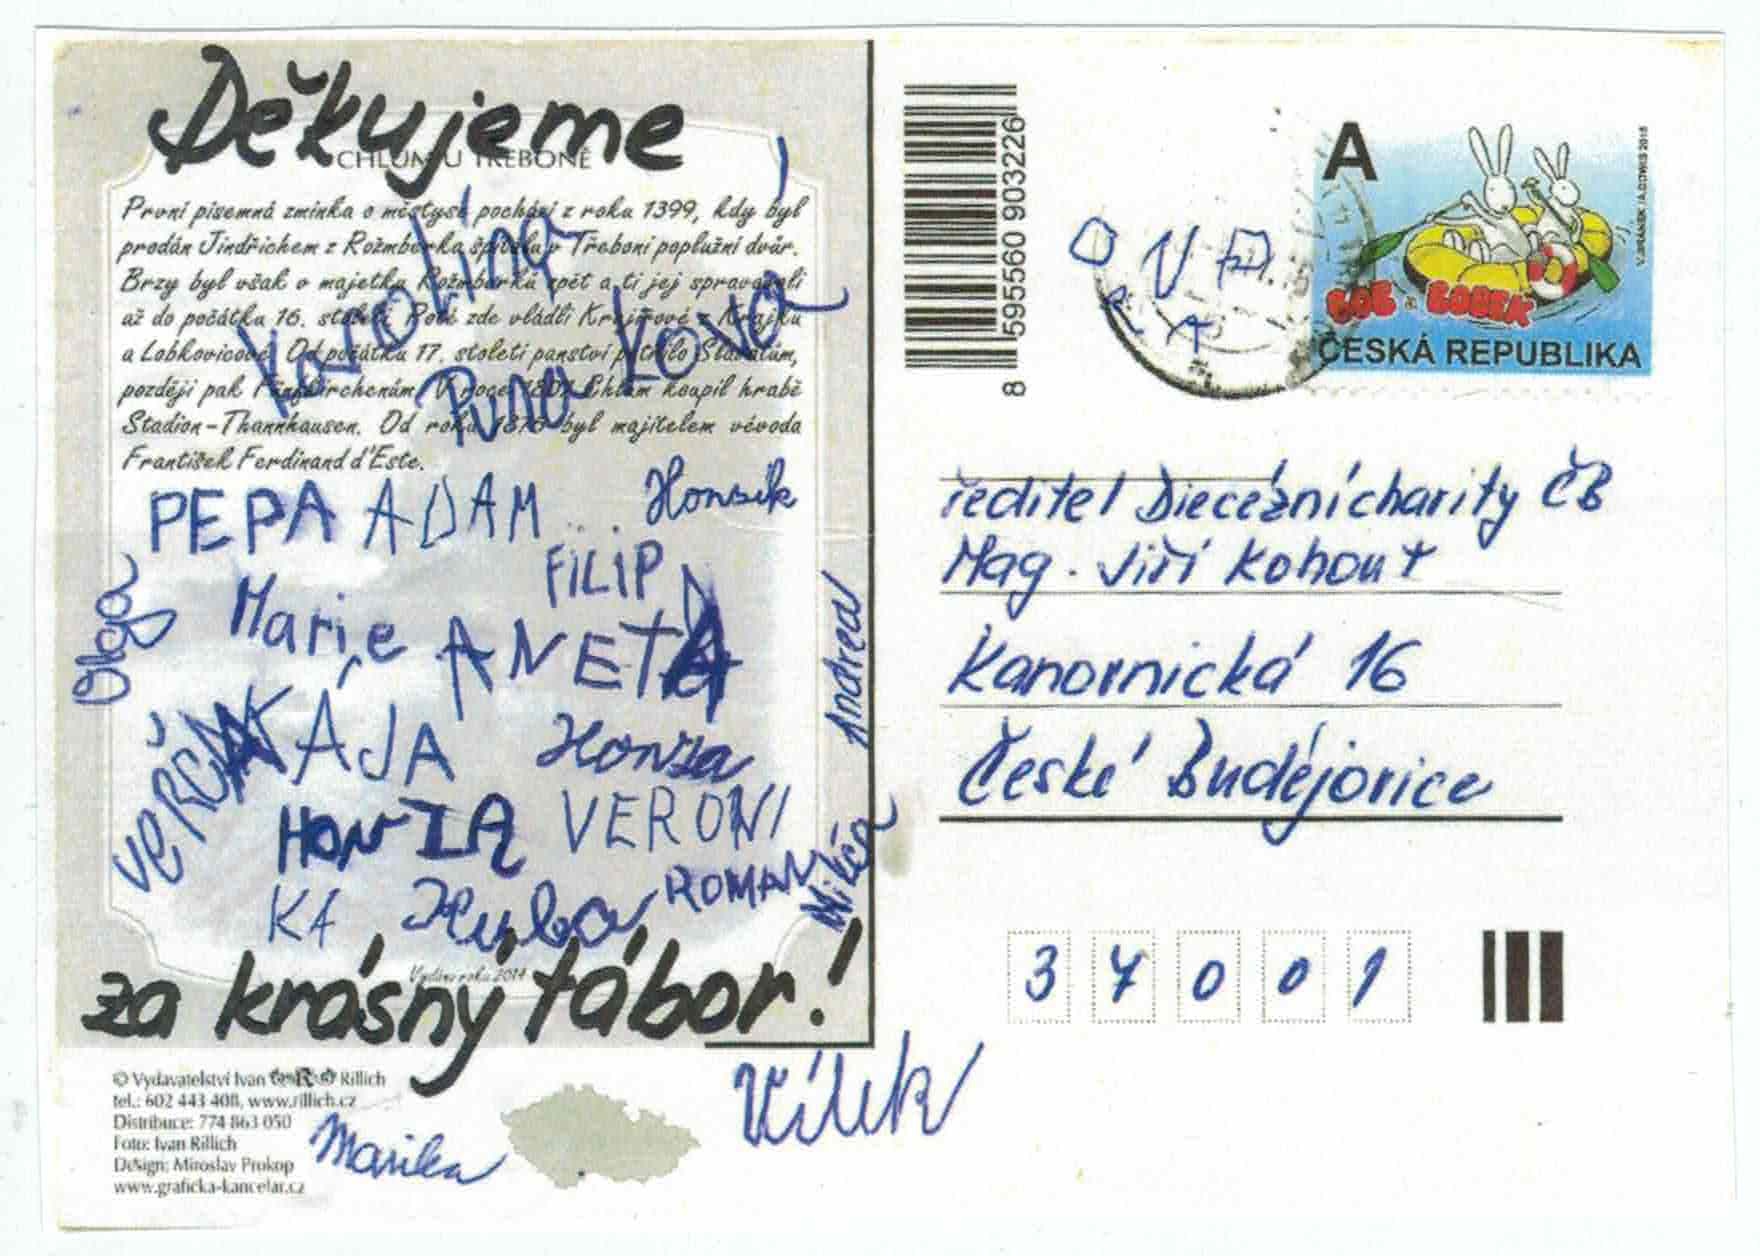 Děkujeme
CHLUM U TŘEBONĚ
První písemná zmínka o městysi pochází z roku 1399, kdy byl
prodán Jindřichem z Rožmberka špitálu v Třeboni poplužní dvůr.
Brzy byl však v majetku Rožmberků zpět a ti jej spravovali
až do počátku 16. století. Poté zde vládli Krajířové z Krajku
a Lobkovicové. Od počátku 17. století panství patřilo Slavatům,
později pak Fünfkirchenům. V roce Chlum koupil hrabě
Stadion-Thannhausen. Od roku 1876 byl majitelem vévoda
František Ferdinand d'Este.
Karolína
Ková
PEPA ADAM Honzík
FILIP
Olga
Marie ANETA
Andrea
VERČA
KÁJA Honza
HONZA VERONI
KA Kuba ROMAN
Vydáno roku 2014
za krásný tábor!
© Vydavatelství Ivan Rillich
tel.: 602 443 408, www.rillich.cz
Distribuce: 774 863 050
Foto: Ivan Rillich
Design: Miroslav Prokop
www.graficka-kancelar.cz
Marika
Vílek
8 595560 903226
A
BOB & BOBEK
ČESKÁ REPUBLIKA
ředitel Diecézní charity ČB
Mag. Jiří Kohout
Kanovnická 16
České Budějovice
37001